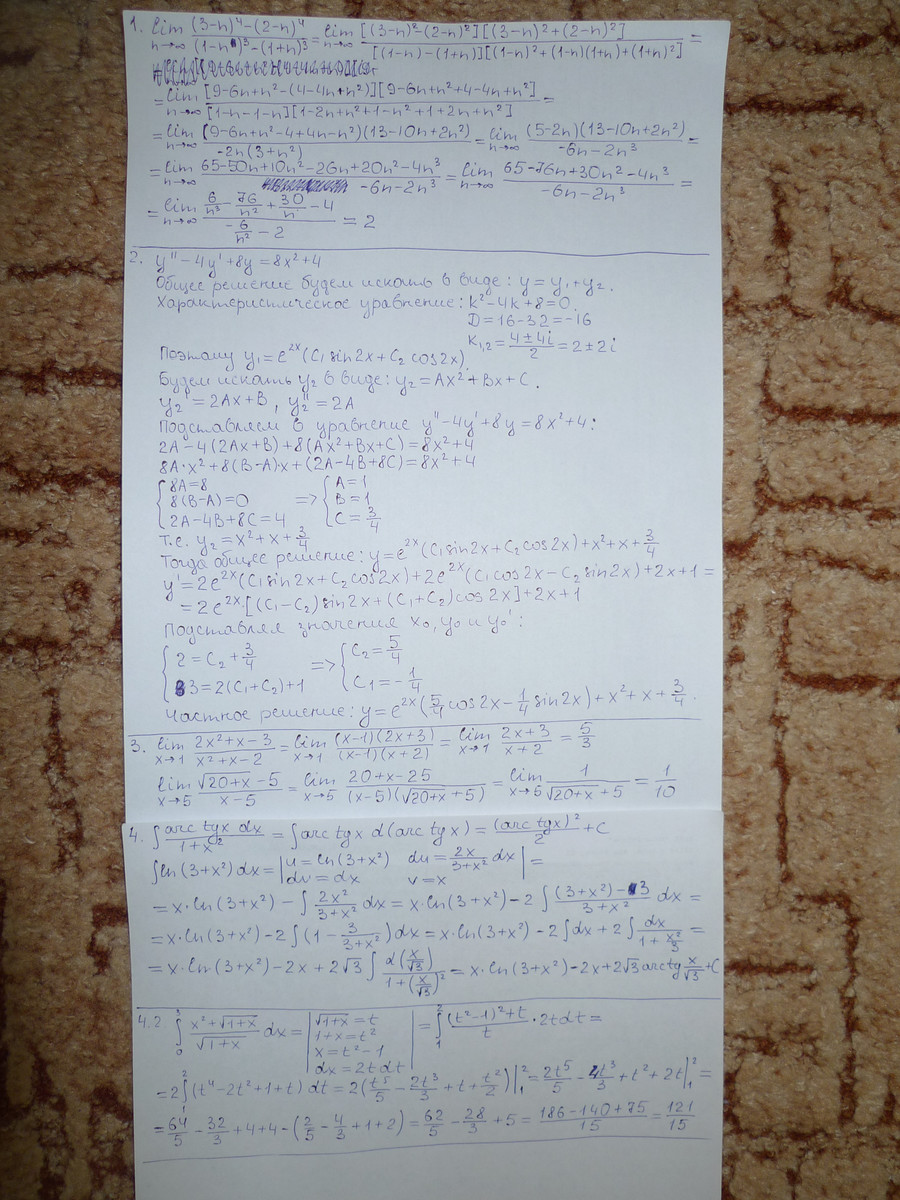 1. lim n→∞ ((3-n)⁴-(2-n)⁴)/((1-n)³-(1+n)³) = lim n→∞ ([(3-n)²-(2-n)²][(3-n)²+(2-n)²])/([(1-n)-(1+n)][(1-n)²+(1-n)(1+n)+(1+n)²]) =
= lim n→∞ ([9-6n+n²-(4-4n+n²)][9-6n+n²+4-4n+n²])/([1-n-1-n][1-2n+n²+1-n²+1+2n+n²]) =
= lim n→∞ ((9-6n+n²-4+4n-n²)(13-10n+2n²))/(-2n(3+n²)) = lim n→∞ ((5-2n)(13-10n+2n²))/(-6n-2n³) =
= lim n→∞ (65-50n+10n²-26n+20n²-4n³)/(-6n-2n³) = lim n→∞ (65-76n+30n²-4n³)/(-6n-2n³) =
= lim n→∞ (6/n³ - 76/n² + 30/n - 4)/(-6/n² - 2) = 2
2. y''-4y'+8y=8x²+4
Общее решение будем искать в виде: y=y₁+y₂.
Характеристическое уравнение: k²-4k+8=0.
D=16-32=-16
k₁,₂=(4±4i)/2=2±2i
Поэтому y₁=e²ˣ(C₁sin2x+C₂cos2x).
Будем искать y₂ в виде: y₂=Ax²+Bx+C.
y₂'=2Ax+B, y₂''=2A
Подставляем в уравнение y''-4y'+8y=8x²+4:
2A-4(2Ax+B)+8(Ax²+Bx+C)=8x²+4
8A·x²+8(B-A)·x+(2A-4B+8C)=8x²+4
{8A=8 A=1
8(B-A)=0 => {B=1
2A-4B+8C=4 C=3/4
т.е. y₂=x²+x+3/4
Тогда общее решение: y=e²ˣ(C₁sin2x+C₂cos2x)+x²+x+3/4
y'=2e²ˣ(C₁sin2x+C₂cos2x)+2e²ˣ(C₁cos2x-C₂sin2x)+2x+1=
=2e²ˣ·[(C₁-C₂)sin2x+(C₁+C₂)cos2x]+2x+1
Подставляя значения x₀, y₀ и y₀':
{2=C₂+3/4 => {C₂=5/4
3=2(C₁+C₂)+1 C₁=-1/4
Частное решение: y=e²ˣ(5/4cos2x-1/4sin2x)+x²+x+3/4.
3. lim x→1 (2x²+x-3)/(x²+x-2) = lim x→1 ((x-1)(2x+3))/((x-1)(x+2)) = lim x→1 (2x+3)/(x+2) = 5/3
lim x→5 (√(20+x)-5)/(x-5) = lim x→5 (20+x-25)/((x-5)(√(20+x)+5)) = lim x→5 1/(√(20+x)+5) = 1/10
4. ∫(arctgx dx)/(1+x²) = ∫arctgx d(arctgx) = (arctgx)²/2 + C
∫ln(3+x²)dx = |u=ln(3+x²) du=2x/(3+x²)dx| =
|dv=dx v=x|
= x·ln(3+x²) - ∫2x²/(3+x²)dx = x·ln(3+x²) - 2∫((3+x²)-3)/(3+x²)dx =
= x·ln(3+x²) - 2∫(1-3/(3+x²))dx = x·ln(3+x²) - 2∫dx + 2∫dx/(1+x²/3) =
= x·ln(3+x²) - 2x + 2√3∫d(x/√3)/(1+(x/√3)²) = x·ln(3+x²) - 2x + 2√3 arctg x/√3 + C
4.2 ∫₀³ (x²+√(1+x))/√(1+x) dx = |√(1+x)=t| = ∫₁² ((t²-1)²+t)/t · 2tdt =
|1+x=t²|
|x=t²-1|
|dx=2tdt|
= 2∫₁²(t⁴-2t²+1+t)dt = 2(t⁵/5 - 2t³/3 + t + t²/2)|₁² = 2t⁵/5 - 4t³/3 + t² + 2t|₁² =
= 64/5 - 32/3 + 4 + 4 - (2/5 - 4/3 + 1 + 2) = 62/5 - 28/3 + 5 = (186-140+75)/15 = 121/15